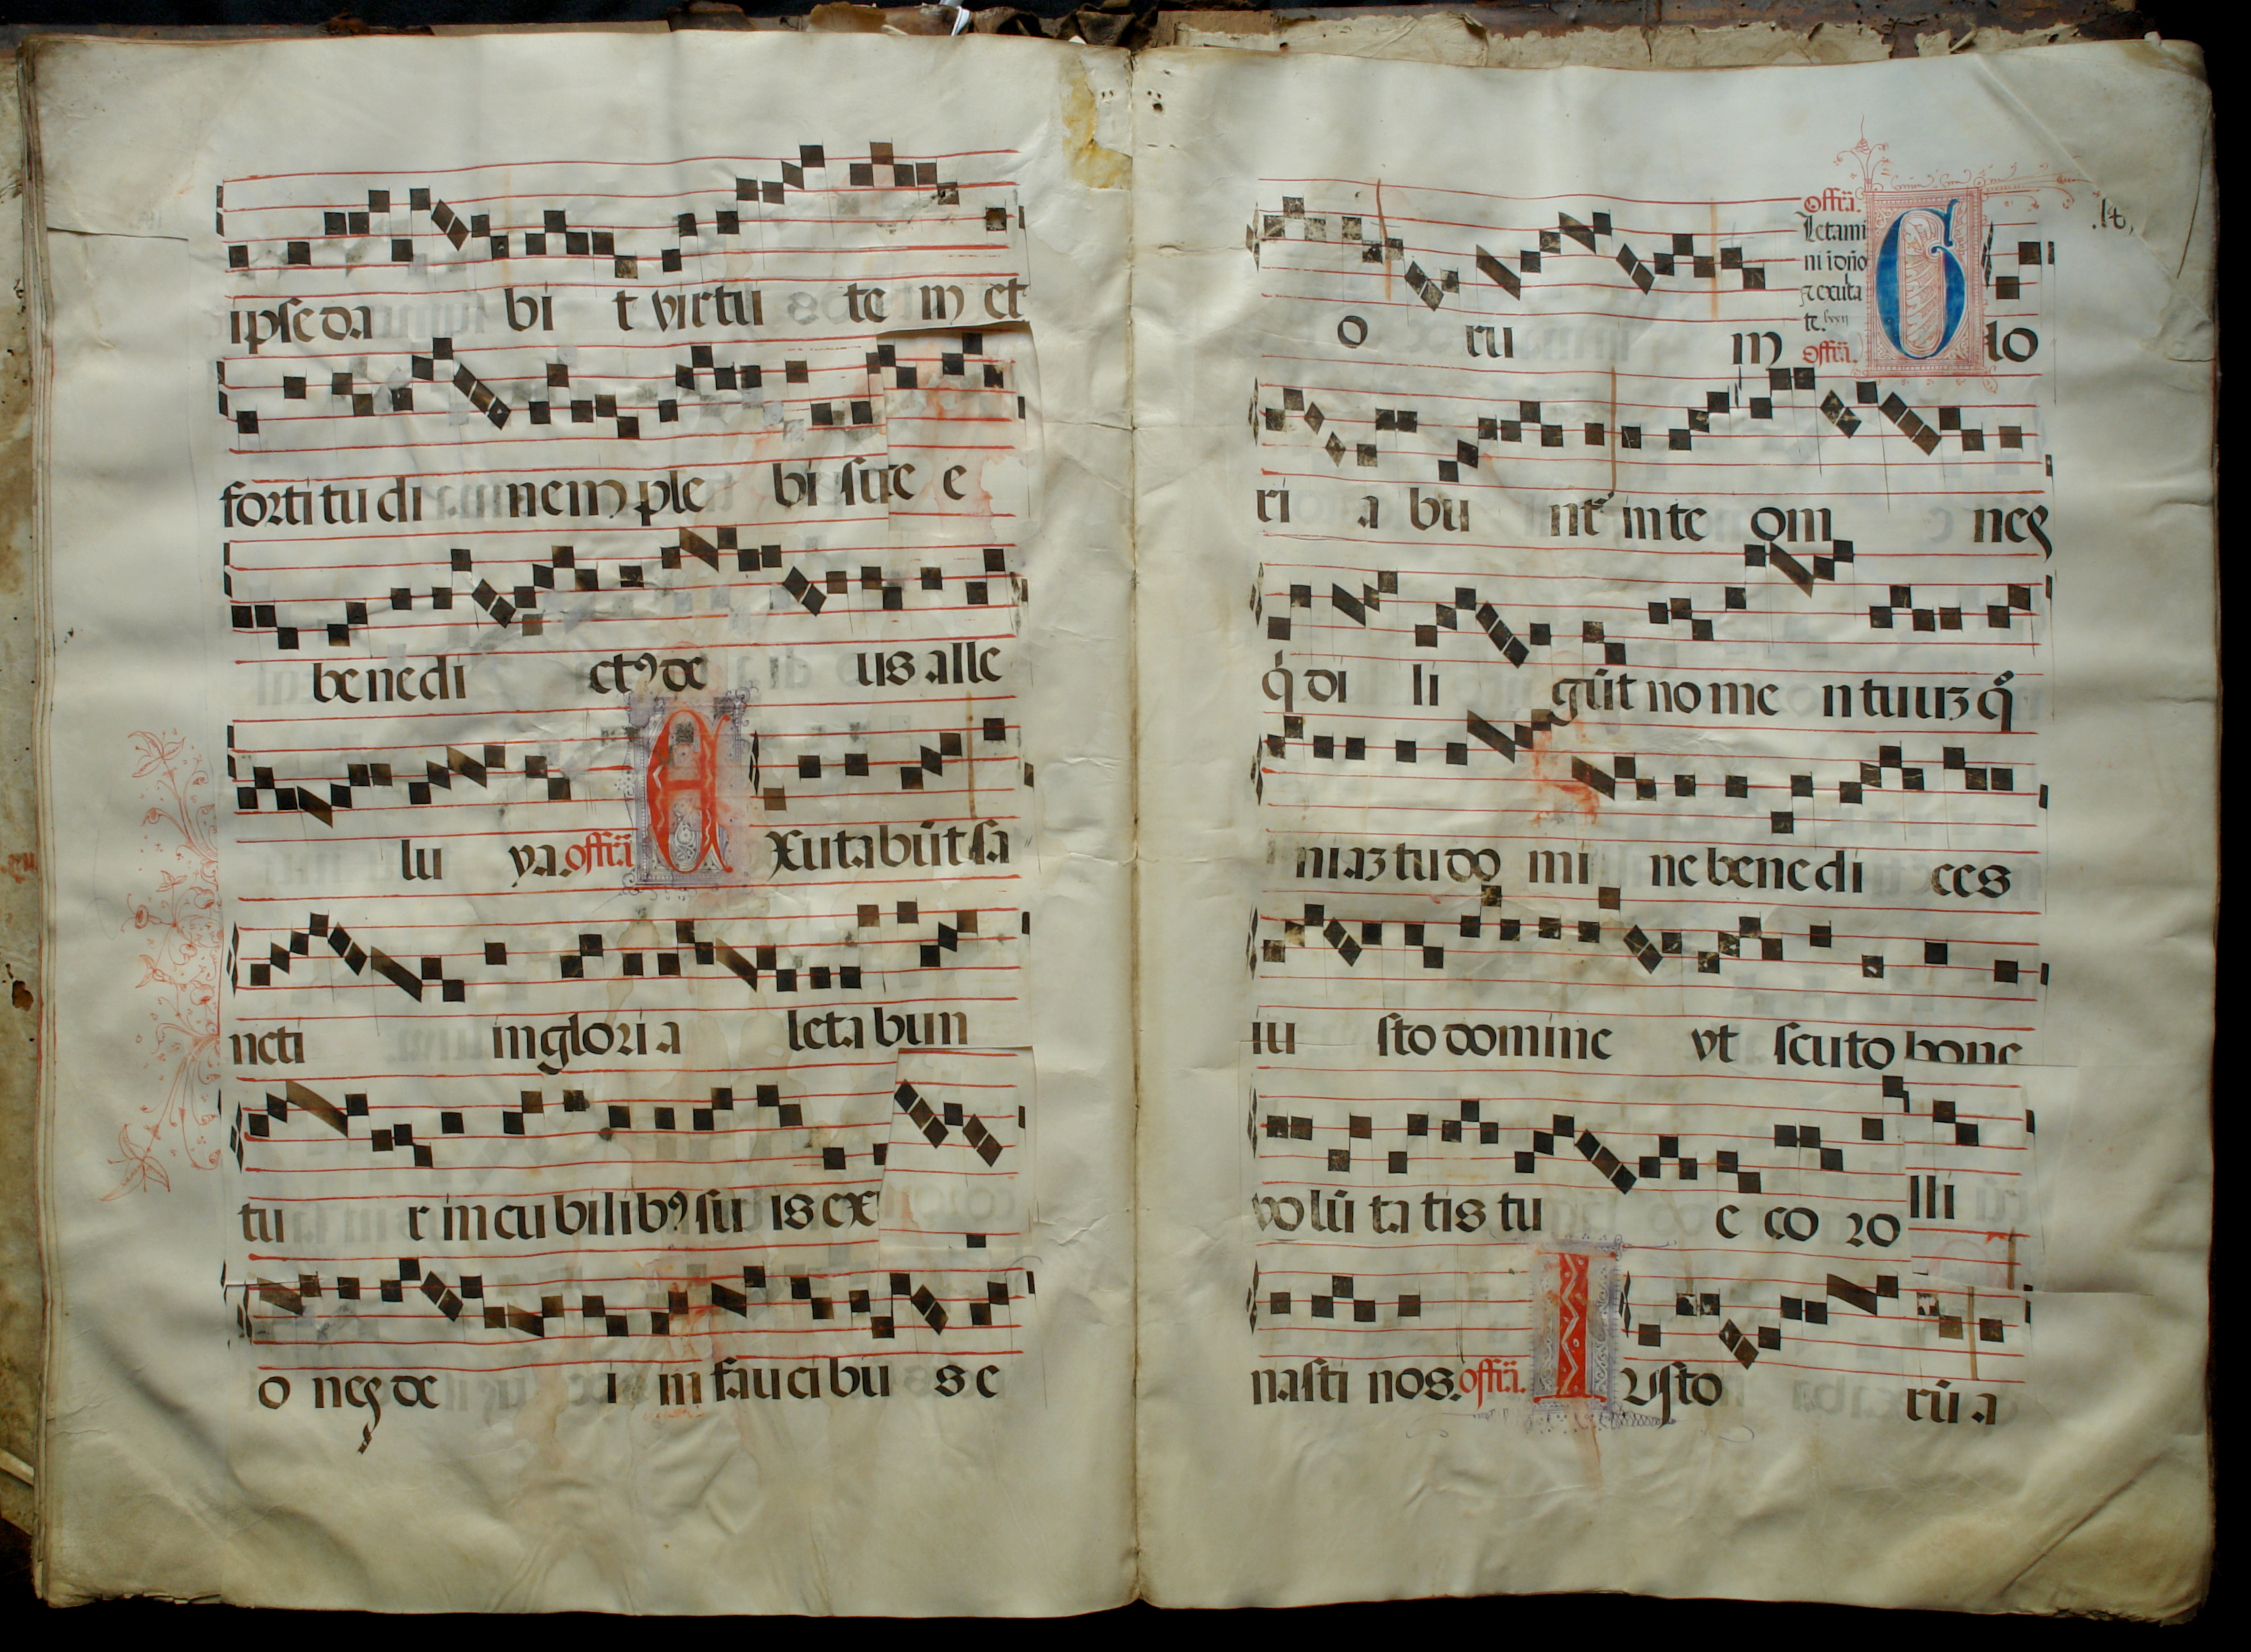 ipse da bi t virtu te m et
fortitu di nem ple bi sue e
benedi ctꝰ de us alle
lu ya. offr̃a E xutabūt sa
ncti in gloria leta bun
tu r in cubilibꝰ su is ex
o neꝭ de i in faucibu s e
.14,
o ru m
offr̃a.
Letami
ni i dño
⁊ exulta
te.
offr̃a. G lo
ri a bu nt᷑ in te om neꝭ
q̇ di li gūt nome n tuuꝫ qm̊
niaꝫ tu do mi ne benedi ces
iu sto domine vt scuto bone
volūtatis tu e co ro
nasti nos. offr̃a. I usto rū a